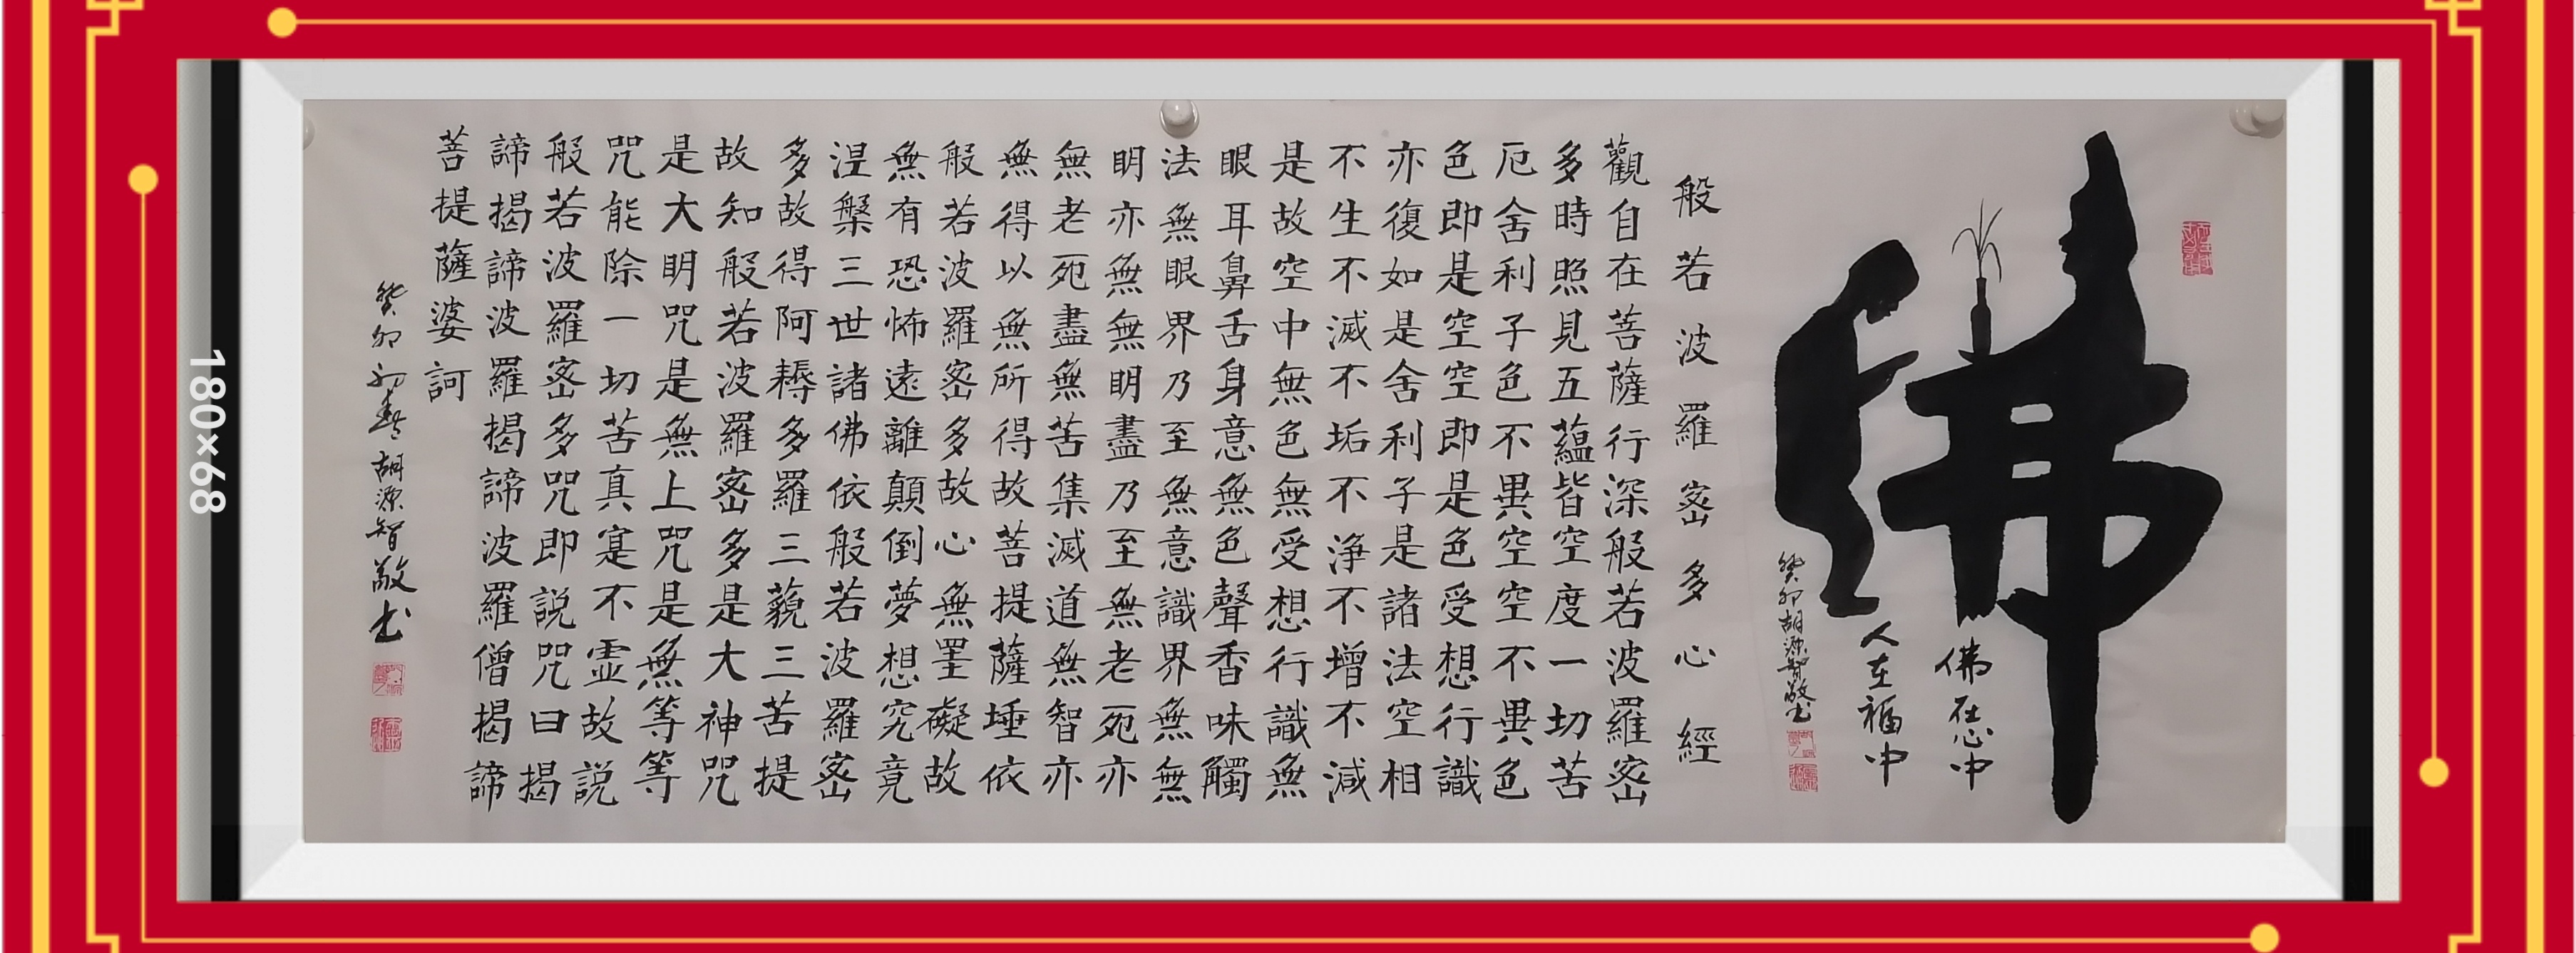 佛
佛在心中
人在福中
癸卯胡源智敬书
般若波羅密多心經
觀自在菩薩行深般若波羅密
多時照見五蘊皆空度一切苦
厄舍利子色不異空空不異色
色即是空空即是色受想行識
亦復如是舍利子是諸法空相
不生不滅不垢不淨不增不減
是故空中無色無受想行識無
眼耳鼻舌身意無色聲香味觸
法無眼界乃至無意識界無無
明亦無無明盡乃至無老死亦
無老死盡無苦集滅道無智亦
無得以無所得故菩提薩埵依
般若波羅密多故心無罣礙故
無有恐怖遠離顛倒夢想究竟
涅槃三世諸佛依般若波羅密
多故得阿耨多羅三藐三苦提
故知般若波羅密多是大神咒
是大明咒是無上咒是無等等
咒能除一切苦真寔不虛故説
般若波羅密多咒即説咒曰揭
諦揭諦波羅揭諦波羅僧揭諦
菩提薩婆訶
癸卯初春胡源智敬书
180×68